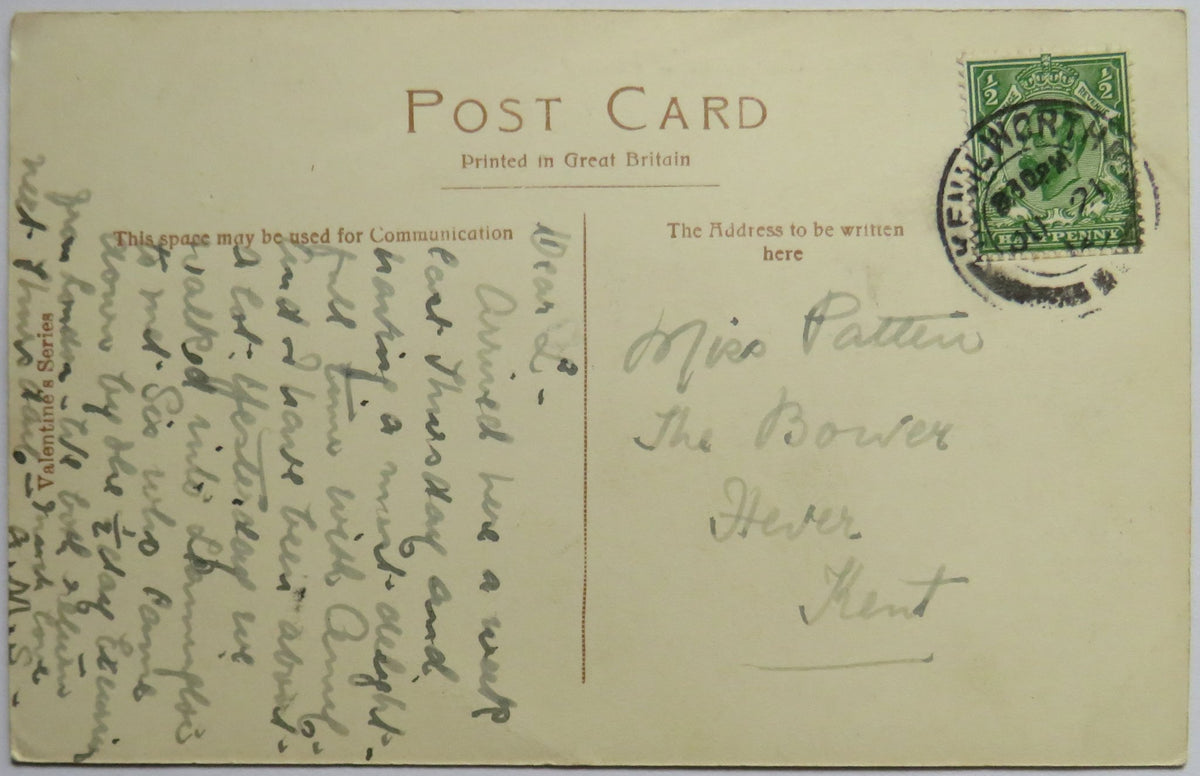 POST CARD
Printed in Great Britain
This space may be used for Communication
The Address to be written
here
Valentine's Series
½ ½
HALFPENNY
KENILWORTH
30 PM
21
Miss Patten
The Bower
Hever
Kent
Dear L² -
Arrived here a week
last Thursday and
having a most delight-
full time with Amy,
and I have been about
a lot. Yesterday we
walked into Leamington
to met Sis who came
down by the ½ day Excursion
from London - We both return
next Thursday - Much love
A. M. S.